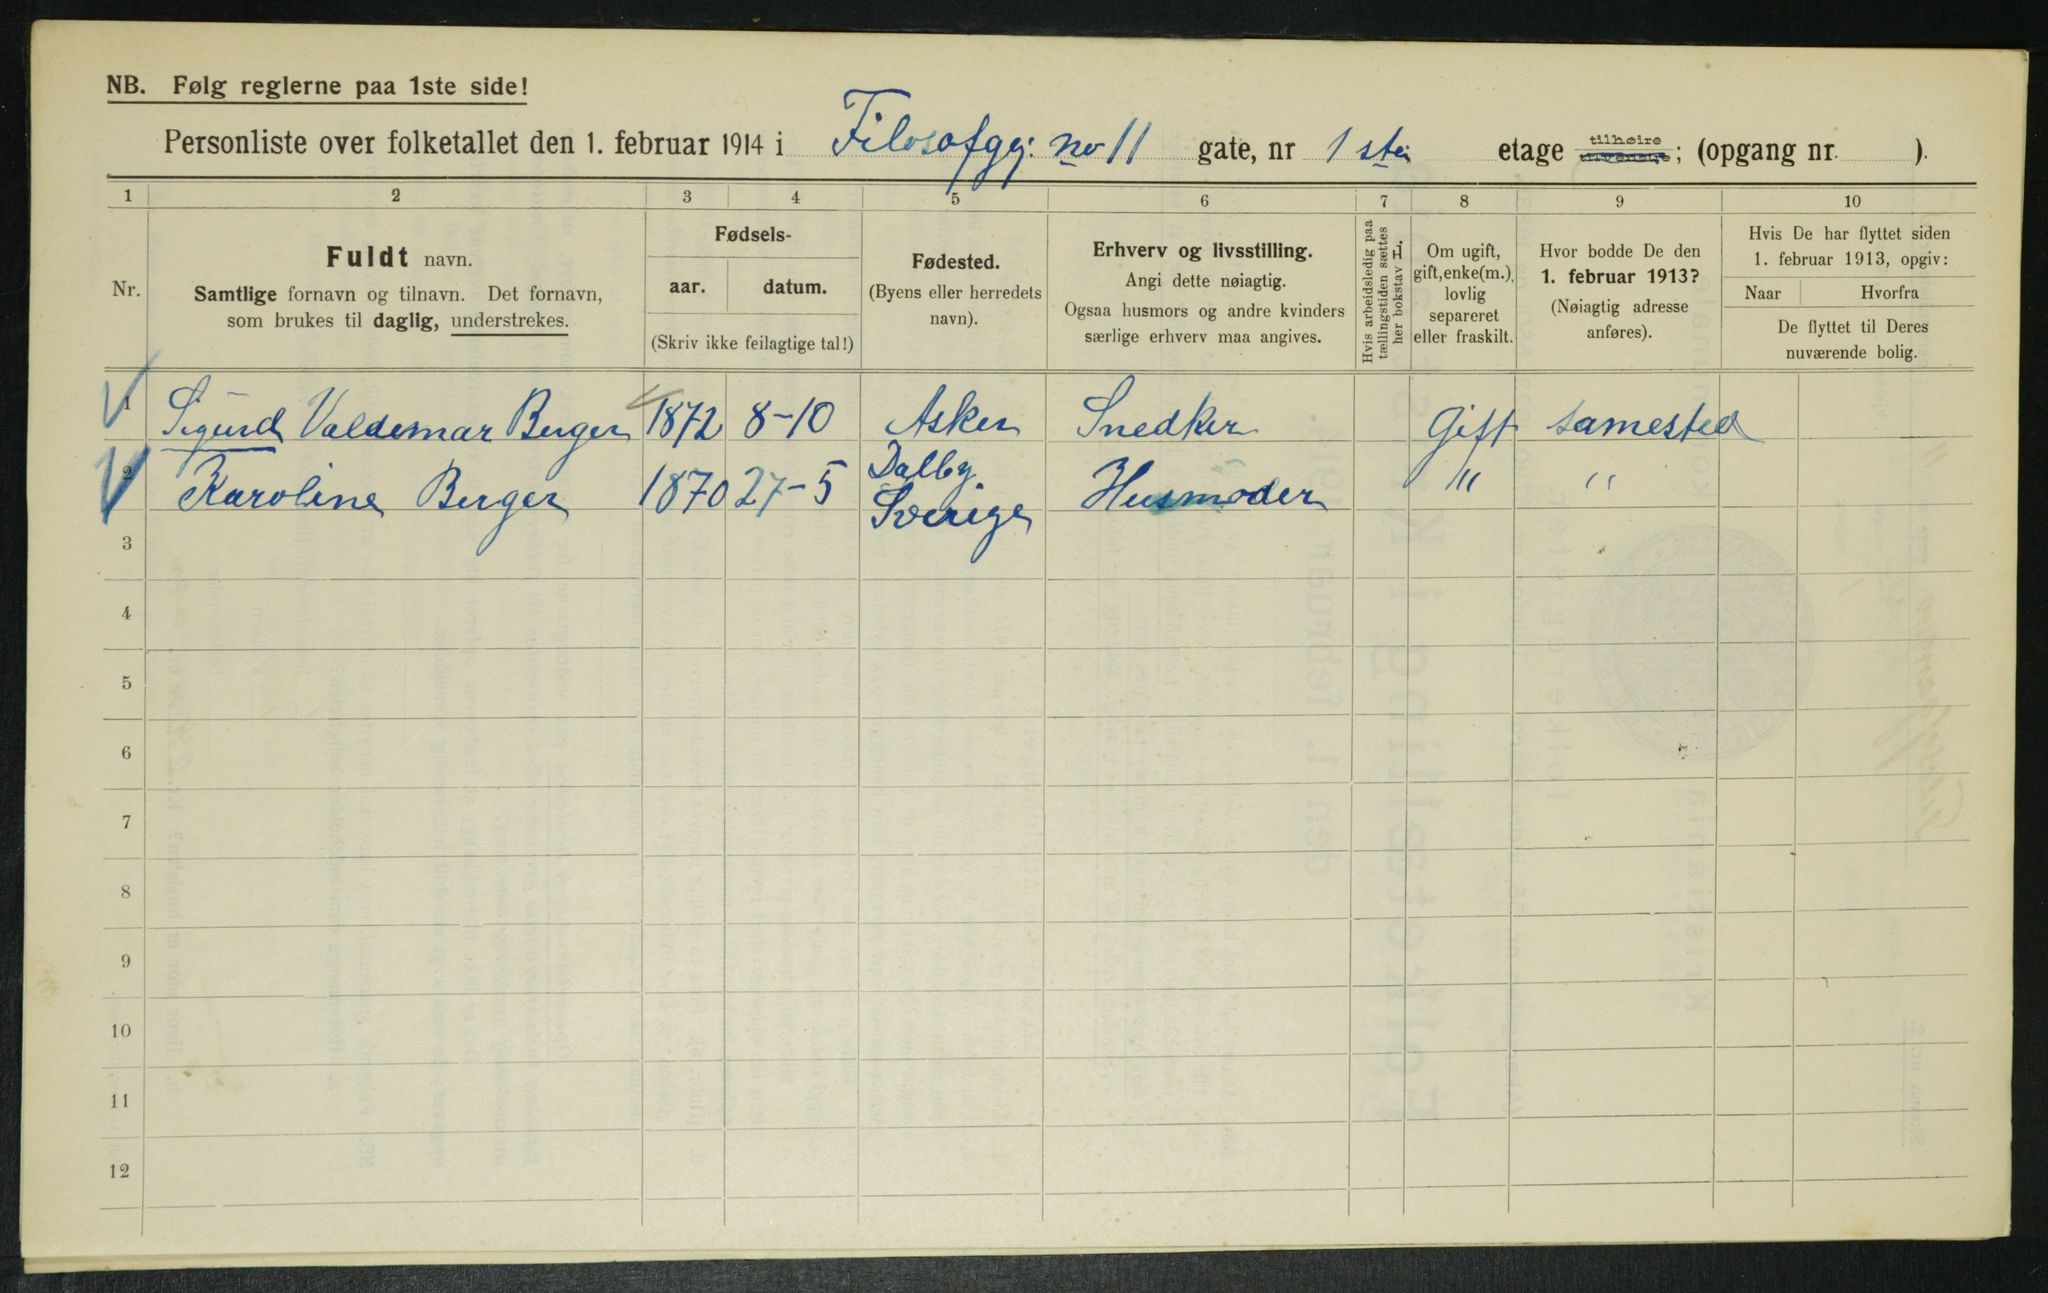 NB. Følg reglerne paa 1ste side!
Personliste over folketallet den 1. februar 1914 i Filosofgt: no 11 gate, nr 1ste etage tilhøire; (opgang nr. ).
1 2 3 4 5 6 7 8 9 10
Nr.
Fuldt navn.
Samtlige fornavn og tilnavn. Det fornavn,
som brukes til daglig, understrekes.
Fødsels-
aar. datum.
(Skriv ikke feilagtige tal!)
Fødested.
(Byens eller herredets
navn).
Erhverv og livsstilling.
Angi dette nøiagtig.
Ogsaa husmors og andre kvinders
særlige erhverv maa angives.
Hvis arbeidsledig paa
tællingstiden sættes
her bokstav L.
Om ugift,
gift, enke(m.),
lovlig
separeret
eller fraskilt.
Hvor bodde De den
1. februar 1913?
(Nøiagtig adresse
anføres).
Hvis De har flyttet siden
1. februar 1913, opgiv:
Naar Hvorfra
De flyttet til Deres
nuværende bolig.
1 Sigurd Valdemar Berger 1872 8-10 Asker Snedker Gift samested
2 Karoline Berger 1870 27-5 Dalby Sverige Husmoder " "
3
4
5
6
7
8
9
10
11
12